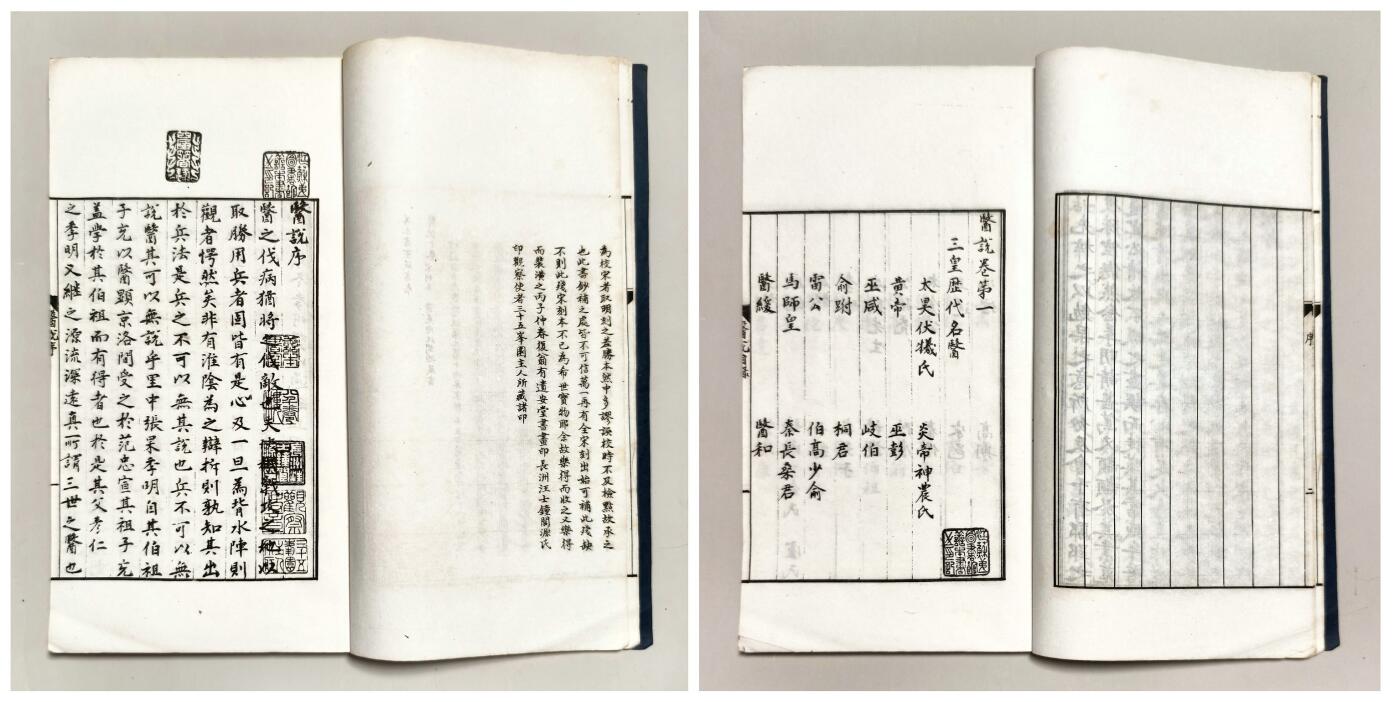 為校宋者取明刻之差勝本然中多謬誤校時不及檢點故承之
也此書鈔補之處皆不可信萬一再有全宋刻出始可補此殘缺
不則此殘宋刻本不已為希世寶物耶余故樂得而收之又樂得
而裝潢之丙子仲春復翁有遺安堂書畫印長洲汪士鐘閬源氏
印觀察使者三十五峯園主人所藏諸印
醫說序
醫之伐病猶將之伐敵也夫
取勝用兵者固皆有是心及一旦為背水陣則
觀者愕然矣非有淮陰為之辯析則孰知其出
於兵法是兵之不可以無其說也兵不可以無
說醫其可以無說乎里中張杲季明自其伯祖
子充以醫顯京洛間受之於范忠宣其祖子充
蓋學於其伯祖而有得者也於是其父彥仁
之季明又繼之源流深遠真所謂三世之醫也
醫說序
序
二
醫說卷第一
三皇歷代名醫
太昊伏犧氏
炎帝神農氏
黃帝
巫彭
巫咸
岐伯
俞跗
桐君
雷公
伯高少俞
馬師皇
秦長桑君
醫緩
醫和
醫說目錄